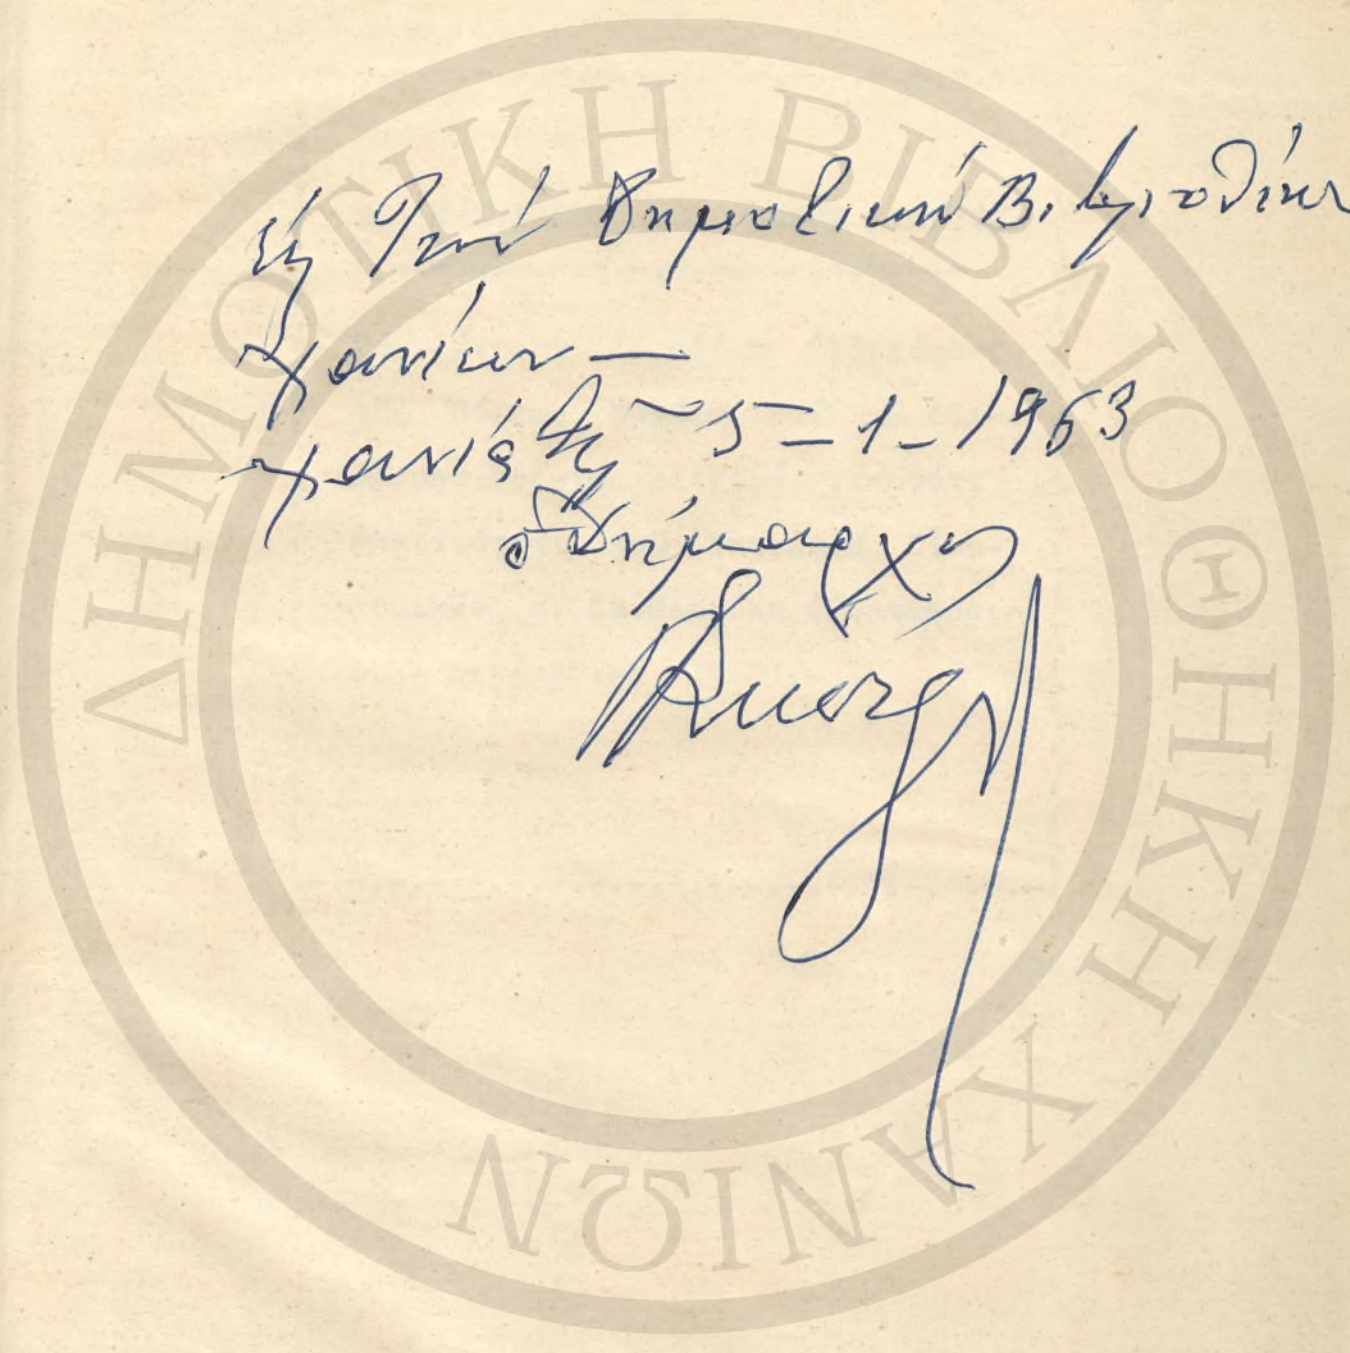 Εἰς τὴν Δημοτικὴν Βιβλιοθήκην
Χανίων —
Χανιά τῇ 5-1-1963
ὁ Δήμαρχος
ΔΗΜΟΤΙΚΗ ΒΙΒΛΙΟΘΗΚΗ ΧΑΝΙΩΝ